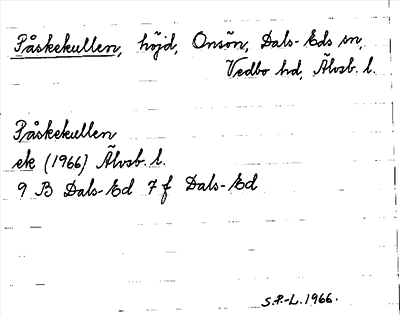 Påskekullen, höjd, Onsön, Dals-Eds sn,
Vedbo hd, Älvsb. l.
Påskekullen
ek (1966) Älvsb. l.
9 B Dals-Ed 7 f Dals-Ed
S.F.-L. 1966.